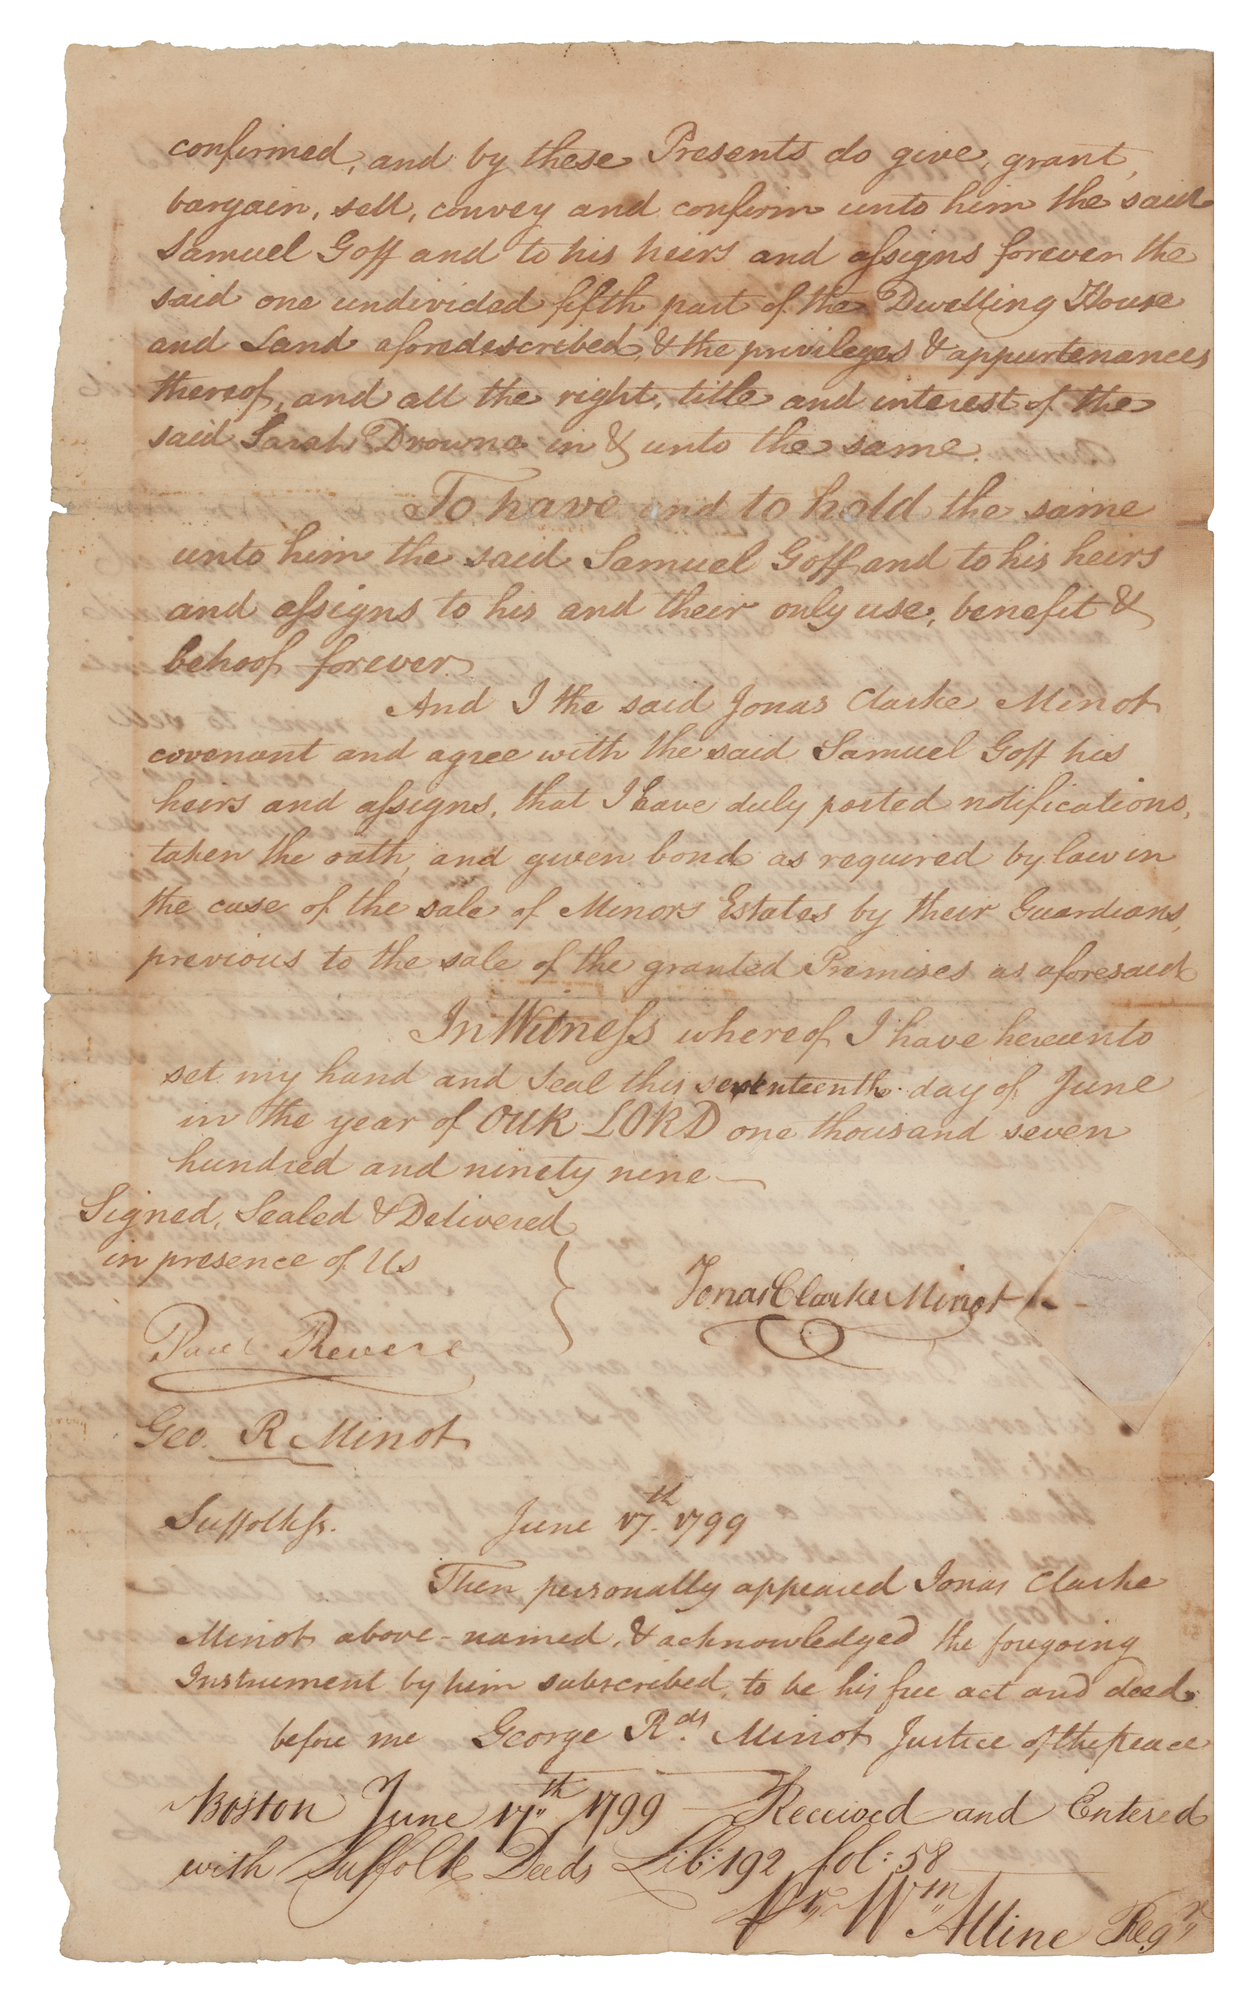 confirmed, and by these Presents do give, grant,
bargain, sell, convey and confirm unto him the said
Samuel Goff and to his heirs and assigns forever the
said one undivided fifth part of the Dwelling House
and Land aforedescribed, & the privileges & appurtenances
thereof, and all the right, title and interest of the
said Sarah Drowne in & unto the same.
To have and to hold the same
unto him the said Samuel Goff and to his heirs
and assigns to his and their only use, benefit &
behoof forever
And I the said Jonas Clarke Minot
covenant and agree with the said Samuel Goff his
heirs and assigns, that I have duly posted notifications,
taken the oath, and given bond as required by law in
the case of the sale of Minors Estates by their Guardians,
previous to the sale of the granted Premises as aforesaid
In Witness whereof I have hereunto
set my hand and seal this seventeenth day of June
in the year of OUR LORD one thousand seven
hundred and ninety nine
Signed, Sealed & Delivered
in presence of Us
Jonas Clarke Minot
Paul Revere
Geo. R Minot
Suffolk ss. June 17th. 1799
Then personally appeared Jonas Clarke
Minot above-named, & acknowledged the foregoing
Instrument by him subscribed, to be his free act and deed
before me George Rds. Minot Justice of the peace
Boston June 17th 1799 Received and Entered
with Suffolk Deeds Lib: 192 fol: 58
Wm Alline Regr